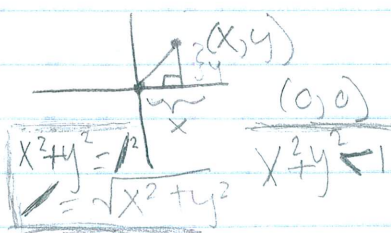 (x,y)
y
x
(0,0)
x²+y²=1²
x²+y²<1
=√x²+y²